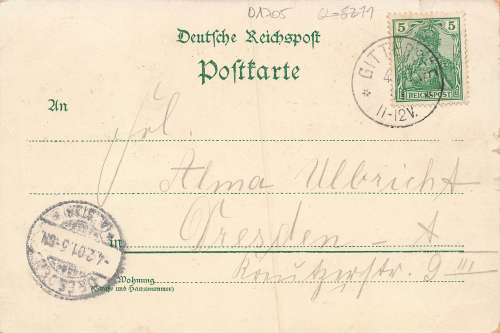 01205 Q=5271
Deutsche Reichspost
Postkarte
5 5
REICHSPOST
GITT
4
11-12V.
An
Frl.
Alma Ulbricht
in Dresden - A
Kreutzerstr. 9 III
Wohnung
(Straße und Hausnummer)
-4.2.01.5-6N